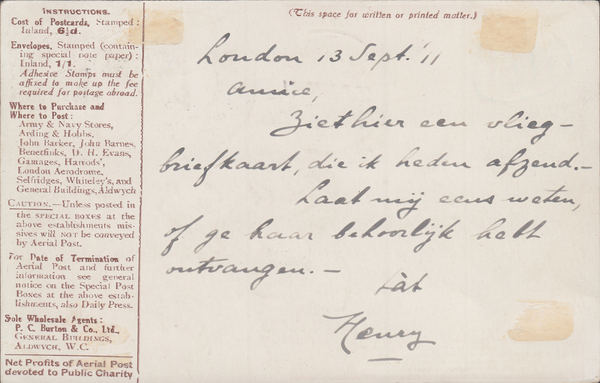 INSTRUCTIONS.
Cost of Postcards, Stamped:
Inland, 6½d.
Envelopes, Stamped (contain-
ing special note paper):
Inland, 1/1.
Adhesive Stamps must be
affixed to make up the fee
required for postage abroad.
Where to Purchase and
Where to Post:
Army & Navy Stores,
Arding & Hobbs,
John Barker, John Barnes,
Benetfinks, D. H. Evans,
Gamages, Harrods',
London Aerodrome,
Selfridges, Whiteley's, and
General Buildings, Aldwych
CAUTION.—Unless posted in
the SPECIAL BOXES at the
above establishments mis-
sives will NOT be conveyed
by Aerial Post.
For Date of Termination of
Aerial Post and further
information see general
notice on the Special Post
Boxes at the above estab-
lishments, also Daily Press.
Sole Wholesale Agents:
P. C. Burton & Co., Ltd.,
GENERAL BUILDINGS,
ALDWYCH, W.C.
Net Profits of Aerial Post
devoted to Public Charity
(This space for written or printed matter.)
London 13 Sept. '11
Amice,
Ziethier een vlieg-
briefkaart, die ik heden afzend.—
Laat mij eens weten,
of ge haar behoorlijk hebt
ontvangen.—
tàt
Henry